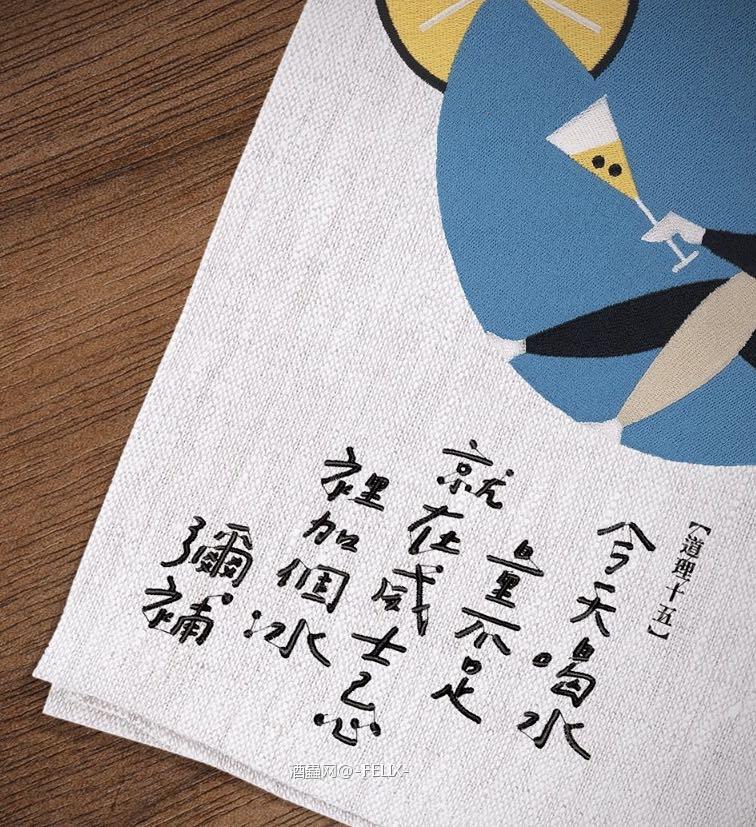 【道理十五】
今天喝水
量不足
就在威士忌
裡加個冰
彌補
酒蟲网@-FELIX-